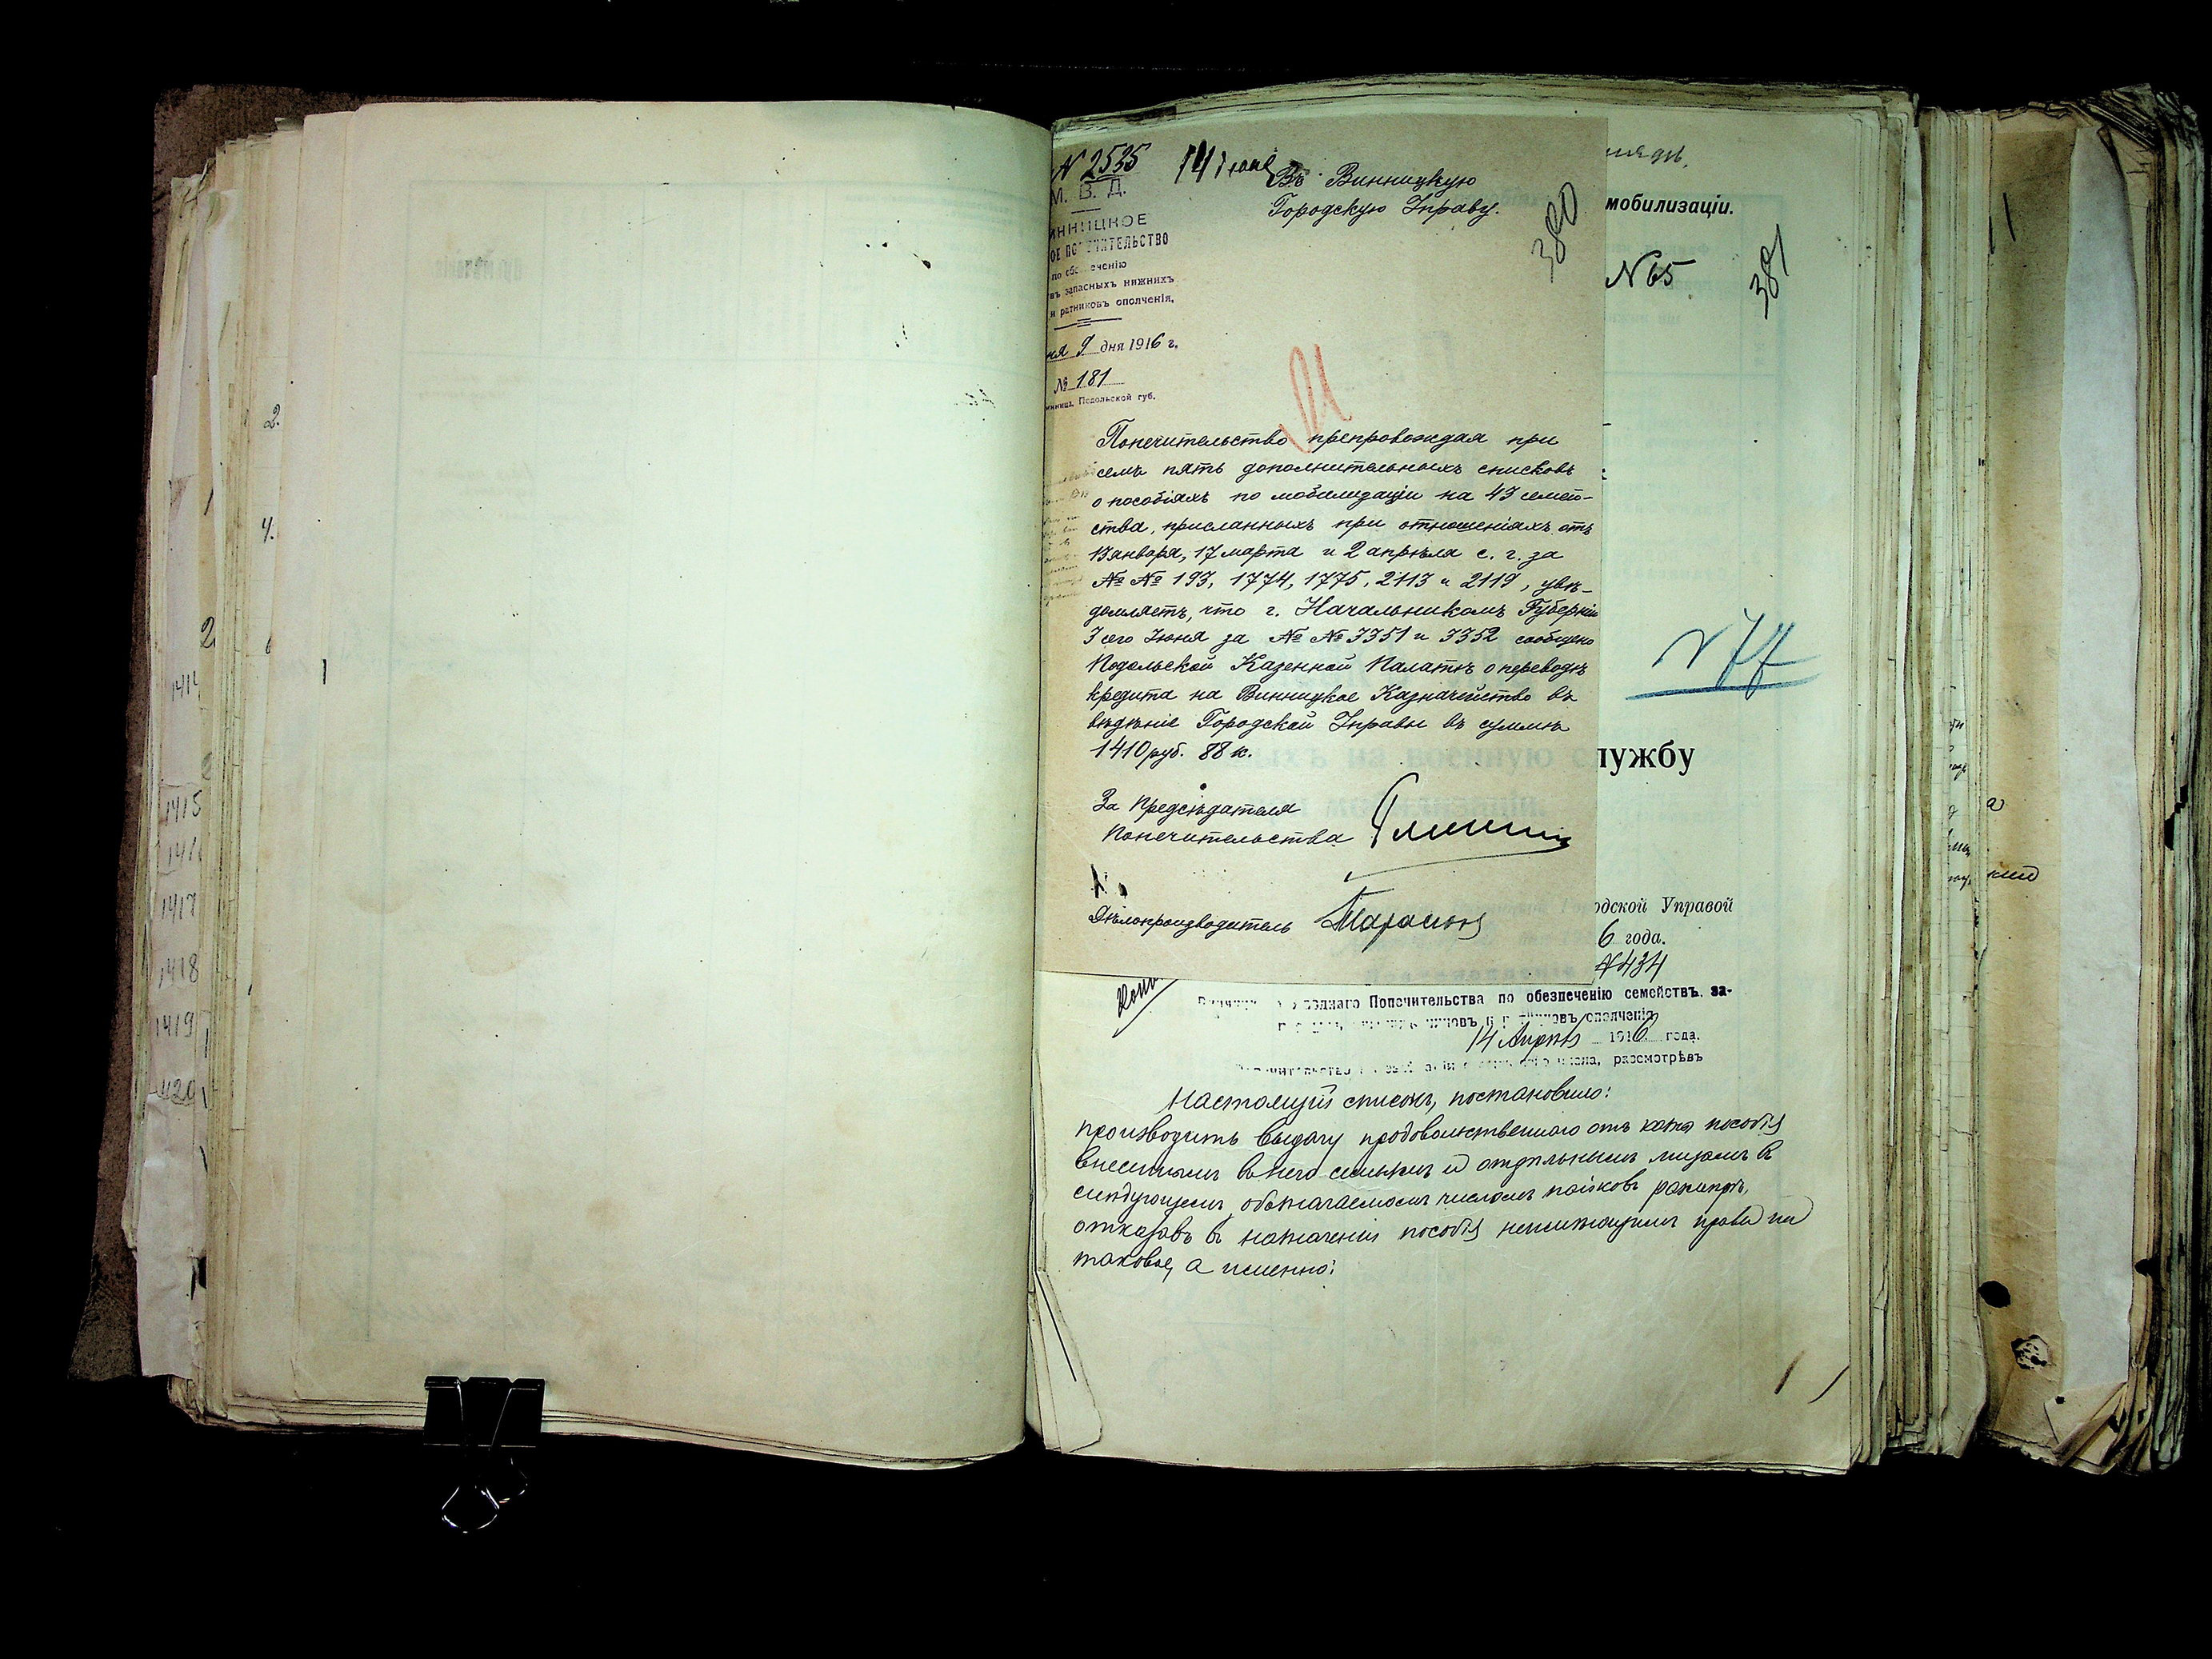 2.
4.
6
1415
1417
1418
1419
№ 2535 14 Іюня
М. В. Д.
ПОПЕЧИТЕЛЬСТВО
запасныхъ нижнихъ
и ратниковъ ополченія,
9 дня 1916 г.
№ 181
Подольской губ.
Въ Винницкую
Городскую Управу.
380
Попечительство препровождая при
семъ пять дополнительныхъ списковъ
о пособіяхъ по мобилизаціи на 43 семей-
ства, присланныхъ при отношеніяхъ отъ
января, 17 марта и 2 апрѣля с. г. за
№ № 193, 1774, 1775, 2113 и 2119, увѣ-
домляетъ, что г. Начальникомъ Губерніи
3 сего Іюня за № № 3351 и 3352 сообщено
Подольской Казенной Палатѣ о переводѣ
кредита на Винницкое Казначейство въ
вѣдѣніе Городской Управы въ суммѣ
1410 руб. 88 к.
За Предсѣдателя
Попечительства
Дѣлопроизводитель
мобилизаціи.
N 65
381
N 77
лужбу
одской Управой
6 года.
N 434
Попечительства по обезпеченію семействъ за-
ополченія
14 Апрѣля 1916 года.
разсмотрѣвъ
настоящій списокъ, постановило:
производить выдачу продовольственнаго отъ казны пособія
внесеннымъ въ него семьямъ и отдѣльнымъ лицамъ въ
слѣдующемъ, обозначаемомъ числомъ пайковъ размѣрѣ,
отказавъ въ назначеніи пособія неимѣющимъ права на
таковое, а именно: